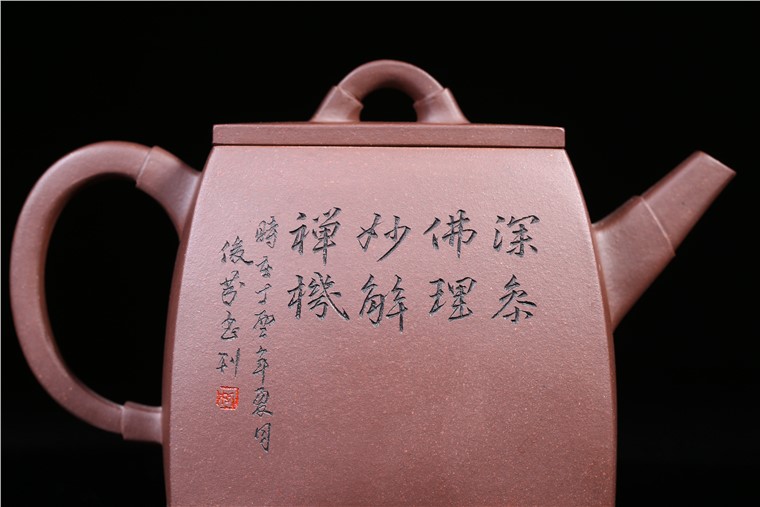 深参
佛理
妙解
禅機
時在丁酉年夏月
俊芳書刊